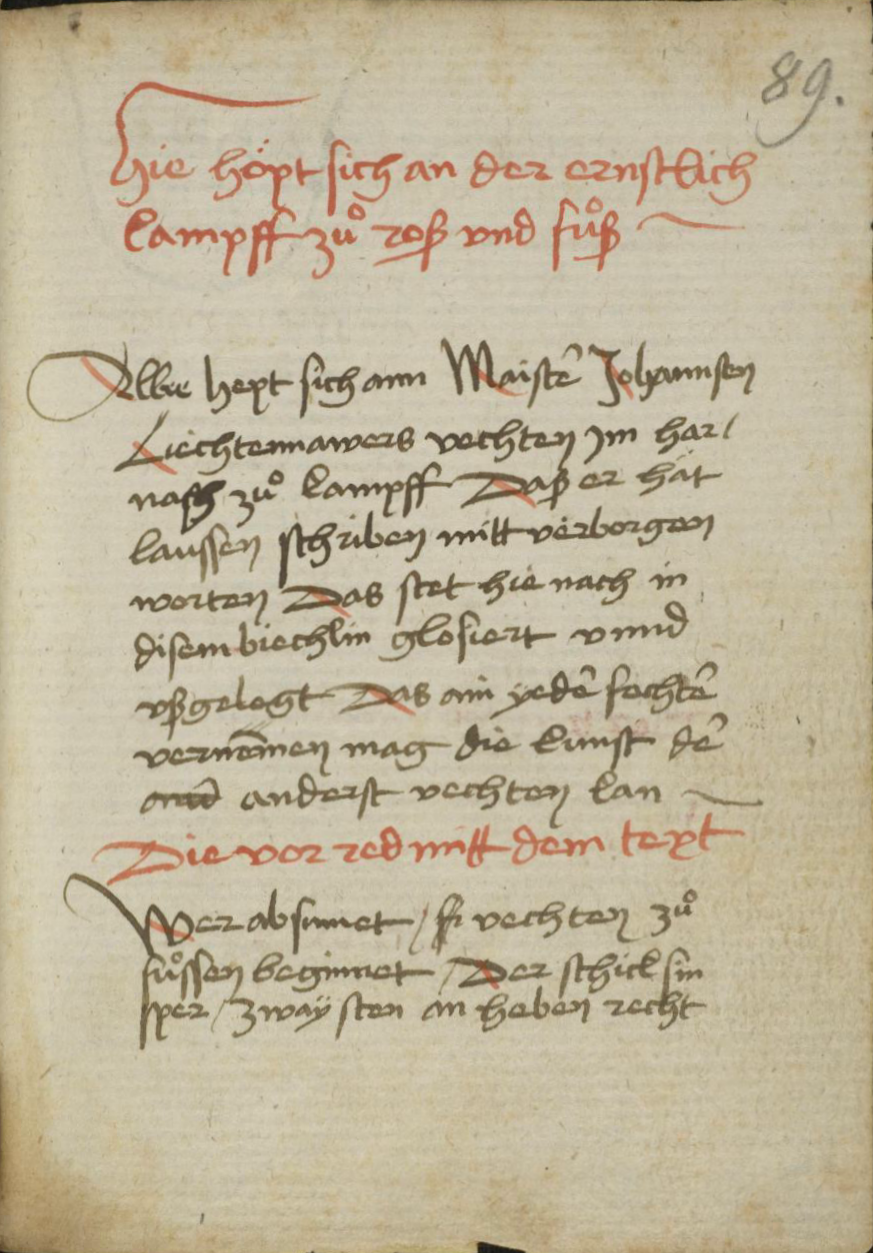 89.
Hie höpt sich an der ernstlich
kampff zuͦ roß vnd fuͦß
Allhie hept sich ann Maister̄ Johannsen
Liechtennawers vechten Jm har/
nasch zuͦ kampff Daß er hät
laussen schriben mitt verborgen
worten Das stet hie nach in
disem biechlin glosiert vnnd
vßgelegt Das ain yedē fechtē
vernēmen mag die kunst dē
anderst vechten kan
Die vor red mitt dem text
Wer absinnet / vechten zuͦ
fuͦssen beginnet / Der schick sin
sper / zway sten an heben recht